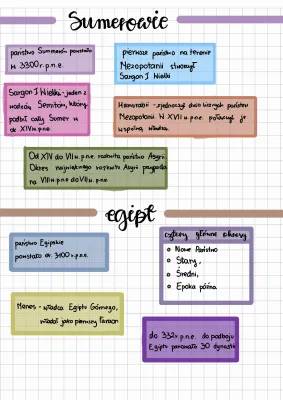 Sumerowie
państwo Sumerów powstało
w 3300 r. p.n.e.
pierwsze państwo na terenie
Mezopotamii stworzył
Sargon I Wielki
Sargon I Wielki - jeden z
wodzów Semitów, który
podbił cały Sumer w
ok. XIV w.p.n.e.
Hammurabi - zjednoczył dwa liczne państwa
Mezopotamii. W XVII w. p.n.e. połączył je
wspólną władzą.
Od XIV do VII w. p.n.e. rozkwita państwo Asyrii
Okres największego rozkwitu Asyrii przypada
na VIII w.p.n.e do VII w.p.n.e.
egipt
państwo Egipskie
powstało ok. 3100 r.p.n.e.
cztery główne okresy
Nowe Państwo
Stary,
Średni,
Epoka późna
Menes - władca Egiptu Górnego,
władał jako pierwszy faraon
do 332r p.n.e. do podboju
Egiptu panowało 30 dynastii